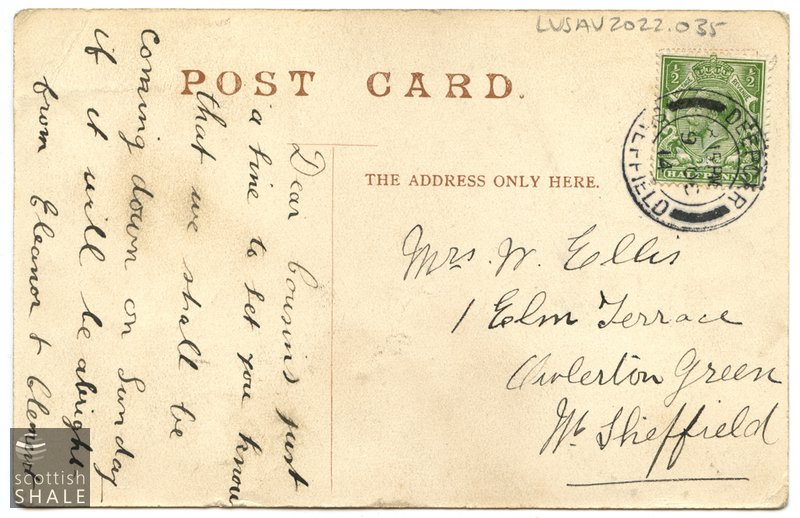 LVSAV2022.035
POST CARD.
THE ADDRESS ONLY HERE.
Dear Cousins just
a line to let you know
that we shall be
coming down on Sunday
if it will be alright
from Eleanor &
Mrs. W. Ellis
1 Elm Terrace
Owlerton Green
Nr Sheffield
DEEPCAR
SHEFFIELD
½ ½
HALFPENNY
scottish
SHALE